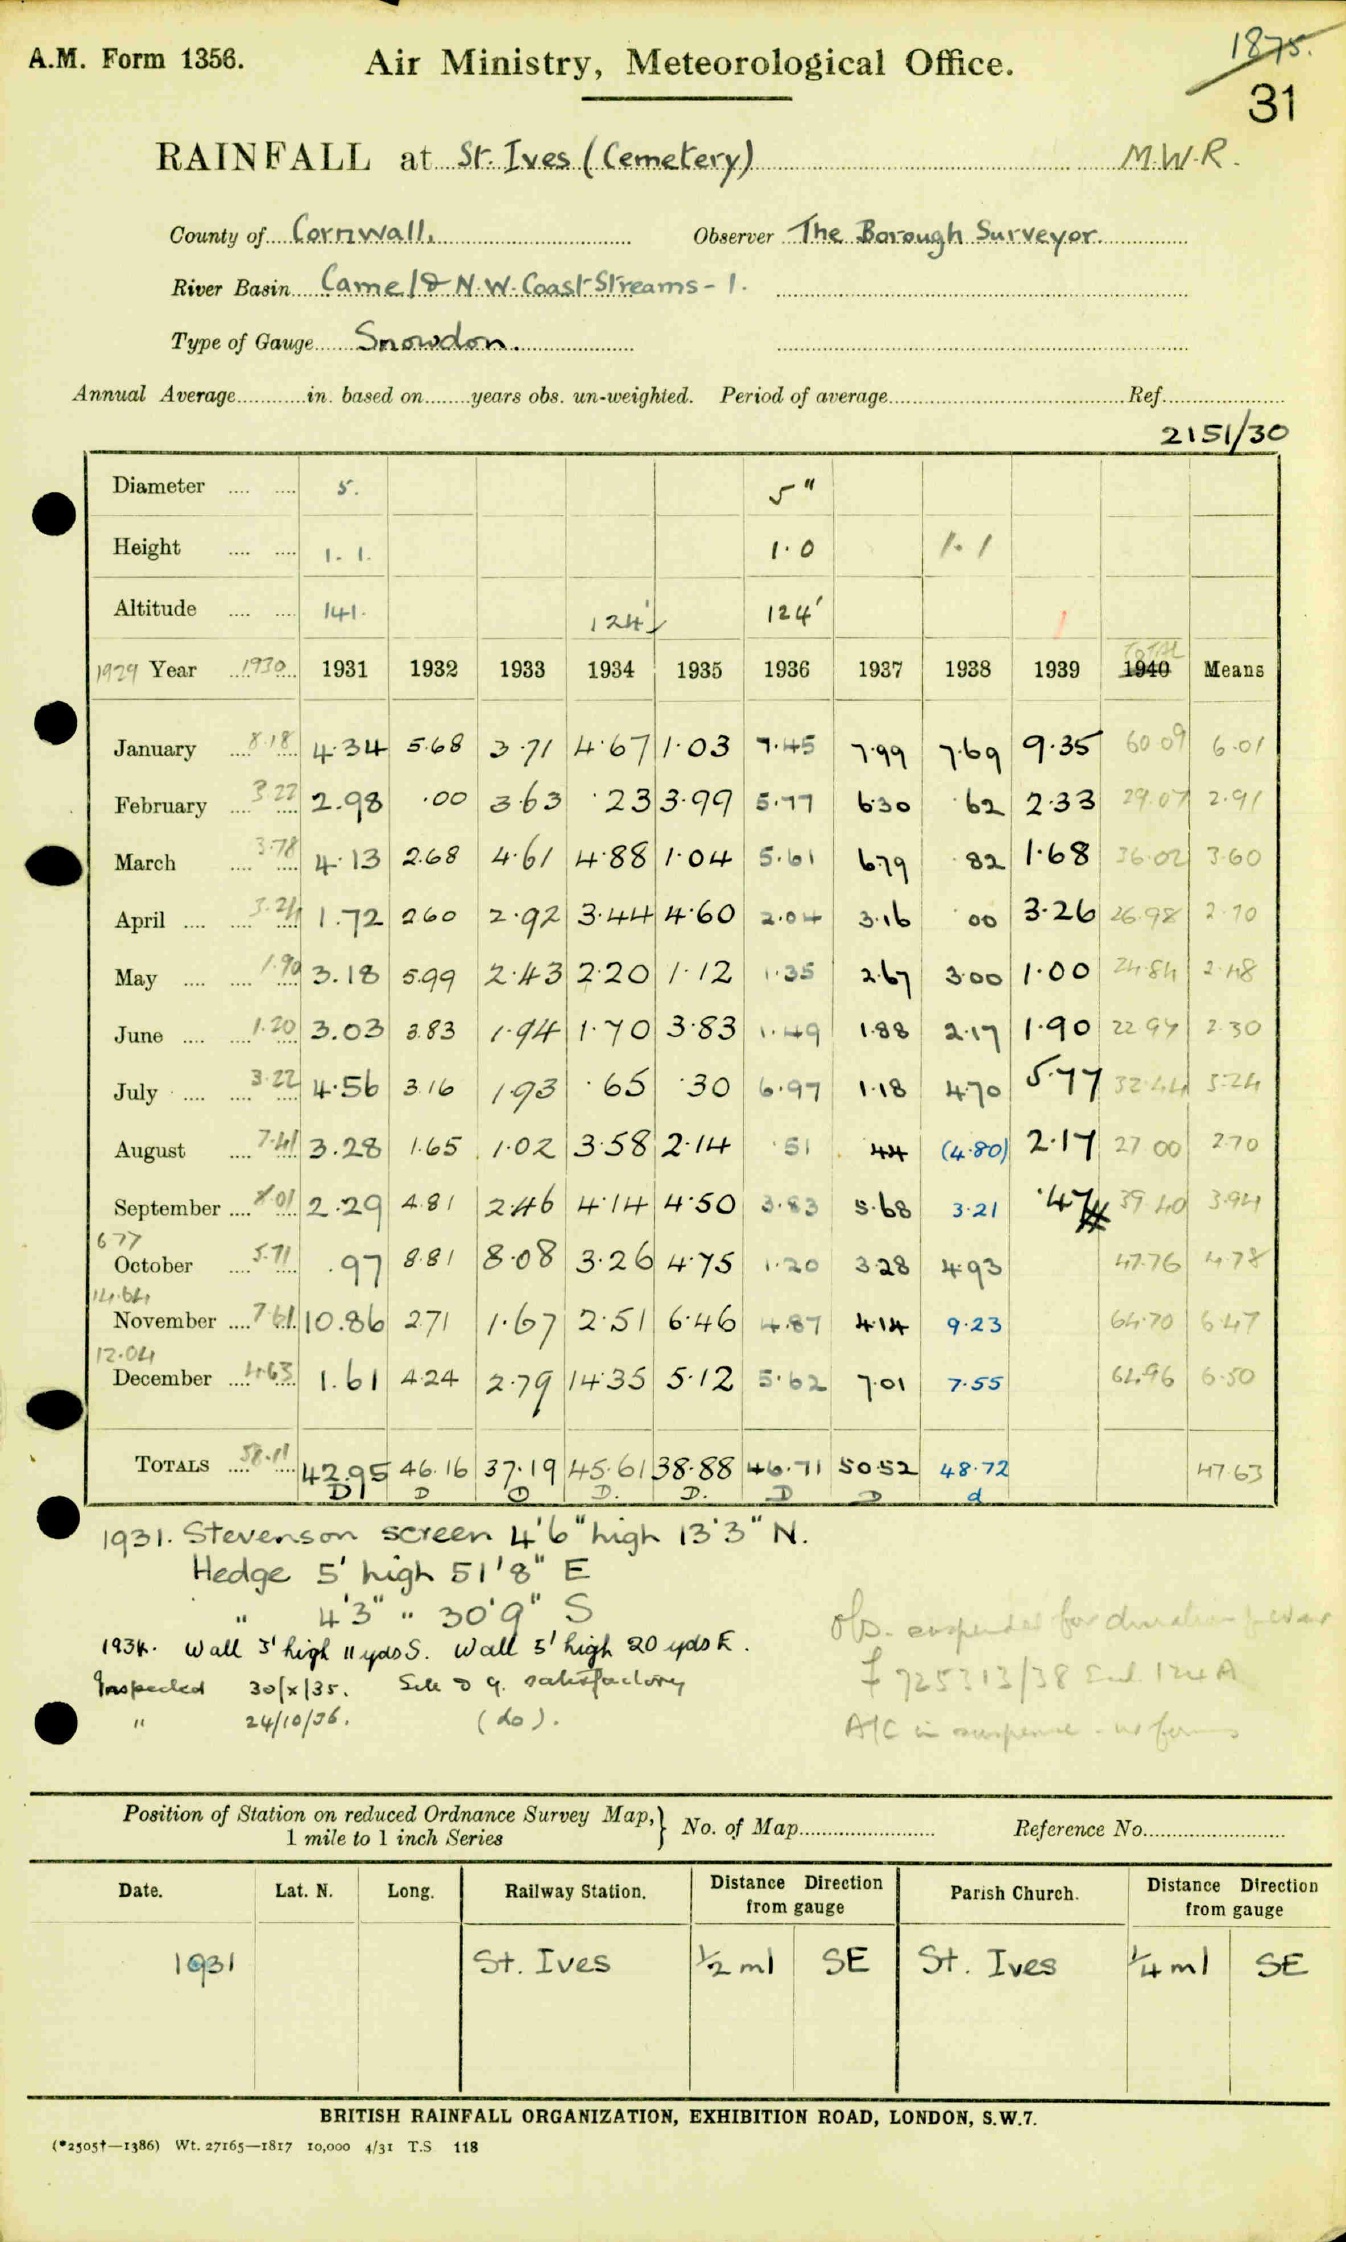 A.M. Form 1356. Air Ministry, Meteorological Office. 1875.
31
RAINFALL at St. Ives (Cemetery) M.W.R.
County of Cornwall. Observer The Borough Surveyor.
River Basin Camel & N.W. Coast Streams - 1.
Type of Gauge Snowdon.
Annual Average in. based on years obs. un-weighted. Period of average Ref.
2151/30
Diameter 5. 5"
Height 1.1. 1.0 1.1
Altitude 141. 124' 124' 1
TOTAL
1929 Year 1930 1931 1932 1933 1934 1935 1936 1937 1938 1939 1940 Means
January 8.18 4.34 5.68 3.71 4.67 1.03 7.45 7.99 7.69 9.35 60.09 6.01
February 3.22 2.98 .00 3.63 .23 3.99 5.77 6.30 .62 2.33 29.07 2.91
March 3.78 4.13 2.68 4.61 4.88 1.04 5.61 6.79 .82 1.68 36.02 3.60
April 3.24 1.72 2.60 2.92 3.44 4.60 2.04 3.16 .00 3.26 26.98 2.70
May 1.90 3.18 5.99 2.43 2.20 1.12 1.35 2.67 3.00 1.00 24.84 2.48
June 1.20 3.03 3.83 1.94 1.70 3.83 1.49 1.88 2.17 1.90 22.97 2.30
July 3.22 4.56 3.16 1.93 .65 .30 6.97 1.18 4.70 5.77 32.44 3.24
August 7.41 3.28 1.65 1.02 3.58 2.14 .51 .44 (4.80) 2.17 27.00 2.70
September 8.01 2.29 4.81 2.46 4.14 4.50 3.83 5.68 3.21 .47 39.40 3.94
6.77
October 5.71 .97 8.81 8.08 3.26 4.75 1.20 3.28 4.93 47.76 4.78
14.64
November 7.61 10.86 2.71 1.67 2.51 6.46 4.87 4.14 9.23 64.70 6.47
12.04
December 4.63 1.61 4.24 2.79 14.35 5.12 5.62 7.01 7.55 64.96 6.50
TOTALS 58.11 42.95 46.16 37.19 45.61 38.88 46.71 50.52 48.72 47.63
D D D D. D. D D d
1931. Stevenson screen 4'6" high 13'3" N.
Hedge 5' high 51'8" E
" 4'3" " 30'9" S
1934. Wall 3' high 11 yds S. Wall 5' high 20 yds E.
Inspected 30/x/35. Site & g. satisfactory
" 24/10/36. (do).
Obs. suspended for duration
F 725313/38 Encl. 124 A
A/C in suspense - no forms
Position of Station on reduced Ordnance Survey Map, } No. of Map Reference No.
1 mile to 1 inch Series
Date. Lat. N. Long. Railway Station. Distance Direction from gauge Parish Church. Distance Direction from gauge
1931 St. Ives 1/2 ml SE St. Ives 1/4 ml SE
BRITISH RAINFALL ORGANIZATION, EXHIBITION ROAD, LONDON, S.W.7.
(*2505†—1386) Wt. 27165—1817 10,000 4/31 T.S 118